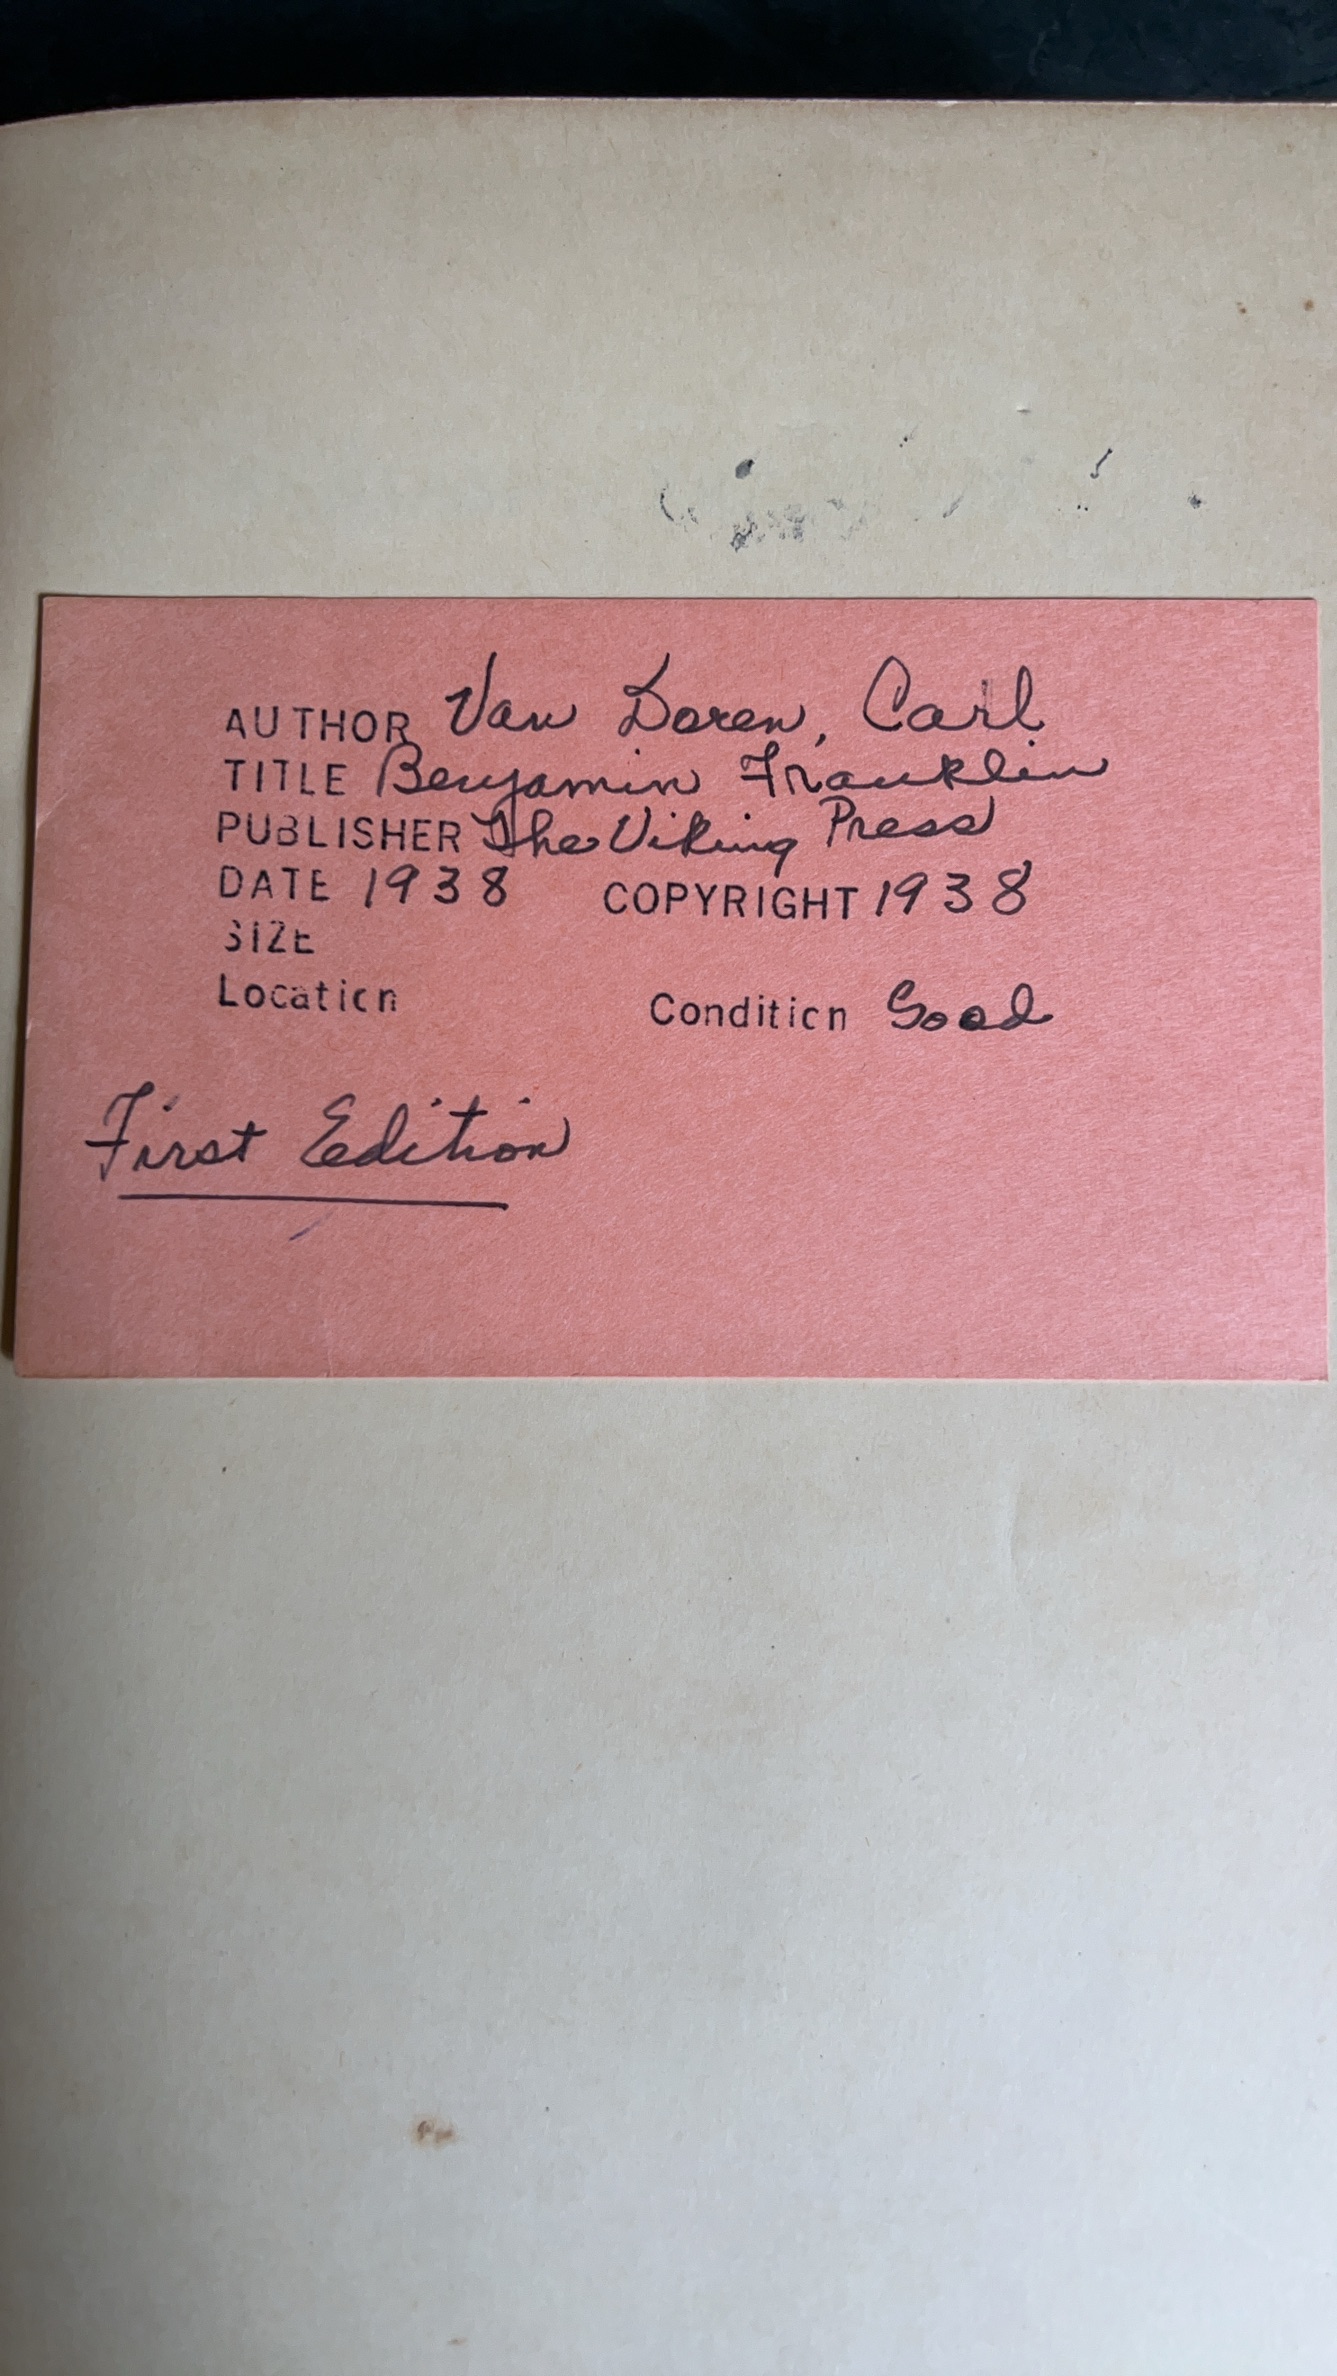 AUTHOR Van Doren, Carl
TITLE Benjamin Franklin
PUBLISHER The Viking Press
DATE 1938 COPYRIGHT 1938
SIZE
Location Condition Good
First Edition